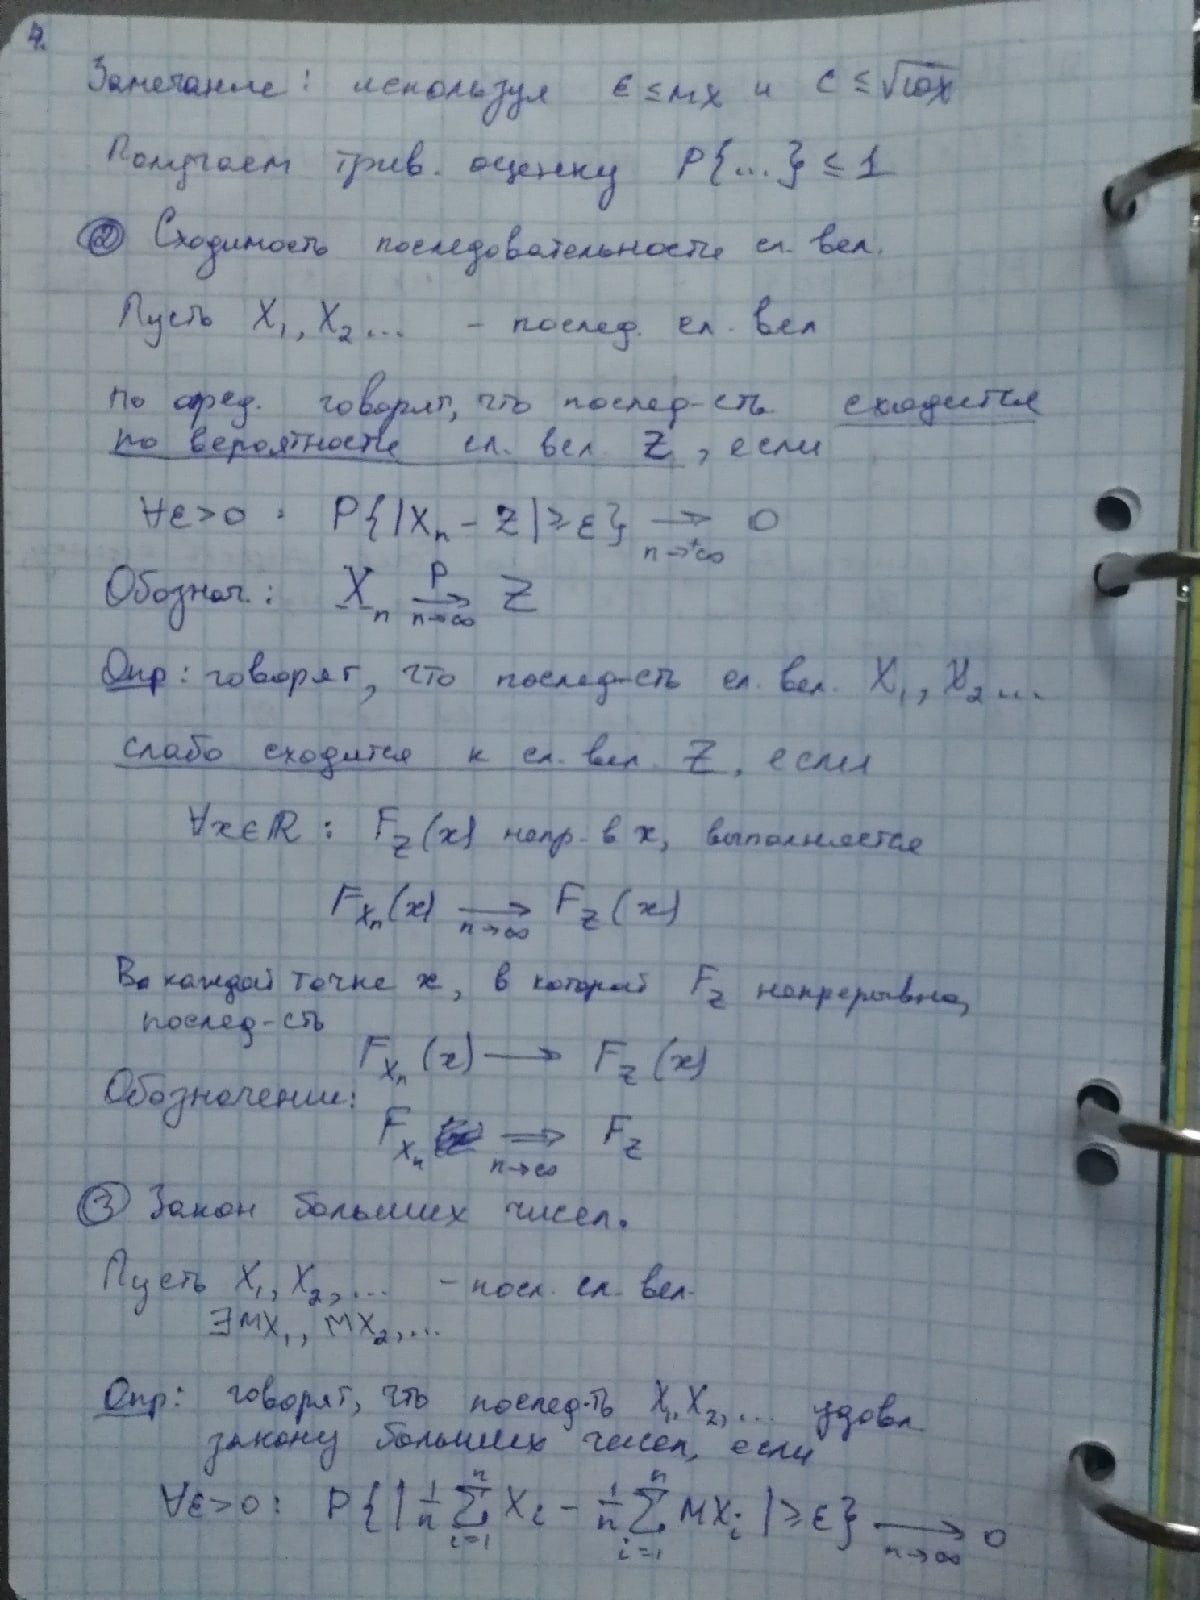 4.
Замечание: используя ε ≤ MX и ε ≤ √DX
Получаем трив. оценку P{...} ≤ 1
② Сходимость последовательности сл. вел.
Пусть X₁, X₂ ... - послед. сл. вел
по опред. говорят, что послед-сть сходится
по вероятности сл. вел. Z, если
∀ε>0 : P{|Xₙ - Z| ≥ ε} ⟶ 0 n→+∞
Обознач.: Xₙ ⟶ Z P n→∞
Опр: говорят, что послед-сть сл. вел. X₁, X₂ ...
слабо сходится к сл. вел. Z, если
∀x∈ℝ : F_Z(x) непр. в x, выполняется
F_Xₙ(x) ⟶ F_Z(x) n→∞
В каждой точке x, в которой F_Z непрерывна,
послед-сть
F_Xₙ(x) ⟶ F_Z(x)
Обозначение:
F_Xₙ ⟹ F_Z n→∞
③ Закон больших чисел.
Пусть X₁, X₂, ... - посл. сл. вел.
∃MX₁, MX₂, ...
Опр: говорят, что послед-ть X₁, X₂, ... удовл
закону больших чисел, если
∀ε>0 : P{|1/n ∑ⁿᵢ₌₁ Xᵢ - 1/n ∑ⁿᵢ₌₁ MXᵢ| ≥ ε} ⟶ 0 n→∞